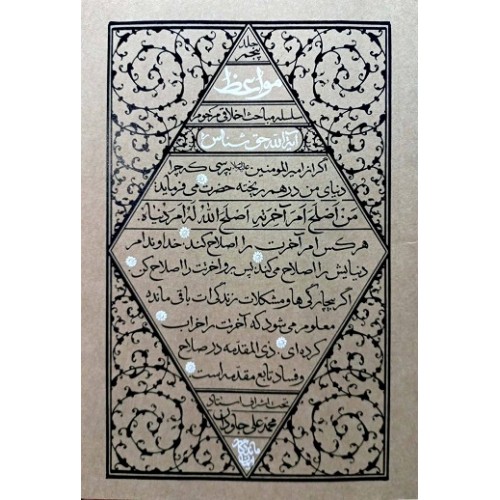 جلد پنجم
مواعظ
سلسله مباحث اخلاقی مرحوم
آیة الله حق شناس
اگر از امیرالمومنین علیه‌السلام بپرسی که چرا
دنیای من درهم ریخته حضرت می فرماید:
مَن اَصلَحَ اَمرَ آخِرَتِهِ اَصلَحَ اللهُ لَهُ اَمرَ دُنیاهُ.
هر کس امر آخرت را اصلاح کند، خداوند امر
دنیایش را اصلاح می‌کند پس برو آخرتت را اصلاح کن
اگر بیچارگی ها و مشکلات زندگی ات باقی مانده
معلوم می شود که آخرتت را خراب
کرده ای. ذی المقدمه در صلاح
و فساد تابع مقدمه است.
تحت اشراف استاد
محمد علی جاودان